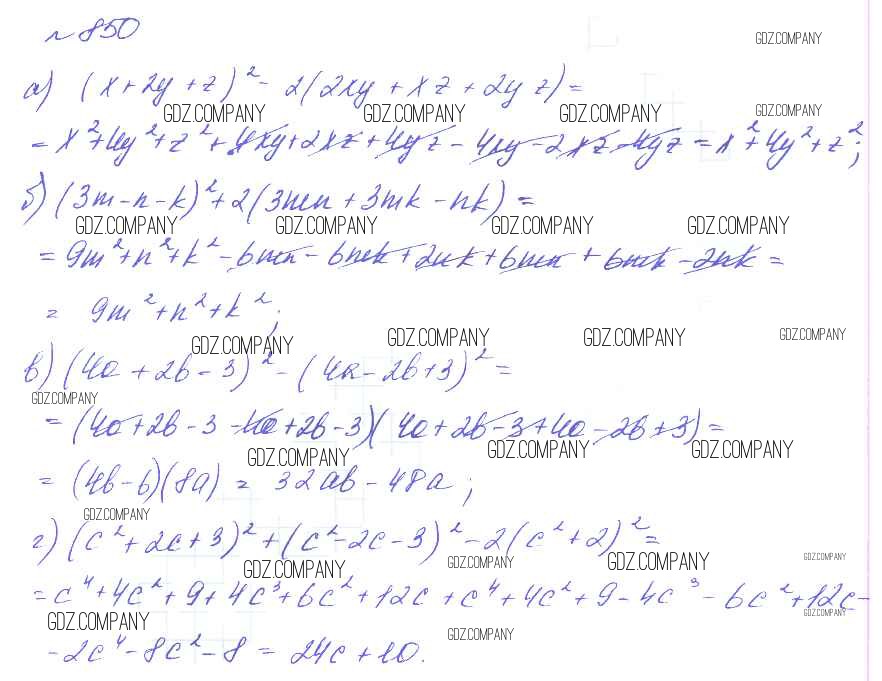 №850
GDZ.COMPANY
а) (x + 2y + z)² - 2(2xy + xz + 2yz) =
GDZ.COMPANY GDZ.COMPANY GDZ.COMPANY GDZ.COMPANY
= x² + 4y² + z² + 4xy + 2xz + 4yz - 4xy - 2xz - 4yz = x² + 4y² + z²;
б) (3m - n - k)² + 2(3mn + 3mk - nk) =
GDZ.COMPANY GDZ.COMPANY GDZ.COMPANY GDZ.COMPANY
= 9m² + n² + k² - 6mn - 6mk + 2nk + 6mn + 6mk - 2nk =
= 9m² + n² + k²;
GDZ.COMPANY GDZ.COMPANY GDZ.COMPANY GDZ.COMPANY
в) (4a + 2b - 3)² - (4a - 2b + 3)² =
GDZ.COMPANY
= (4a + 2b - 3 - 4a + 2b - 3)(4a + 2b - 3 + 4a - 2b + 3) =
GDZ.COMPANY GDZ.COMPANY GDZ.COMPANY
= (4b - 6)(8a) = 32ab - 48a;
GDZ.COMPANY
г) (c² + 2c + 3)² + (c² - 2c - 3)² - 2(c² + 2)² =
GDZ.COMPANY GDZ.COMPANY GDZ.COMPANY GDZ.COMPANY
= c⁴ + 4c² + 9 + 4c³ + 6c² + 12c + c⁴ + 4c² + 9 - 4c³ - 6c² + 12c -
GDZ.COMPANY GDZ.COMPANY
- 2c⁴ - 8c² - 8 = 24c + 10.
GDZ.COMPANY